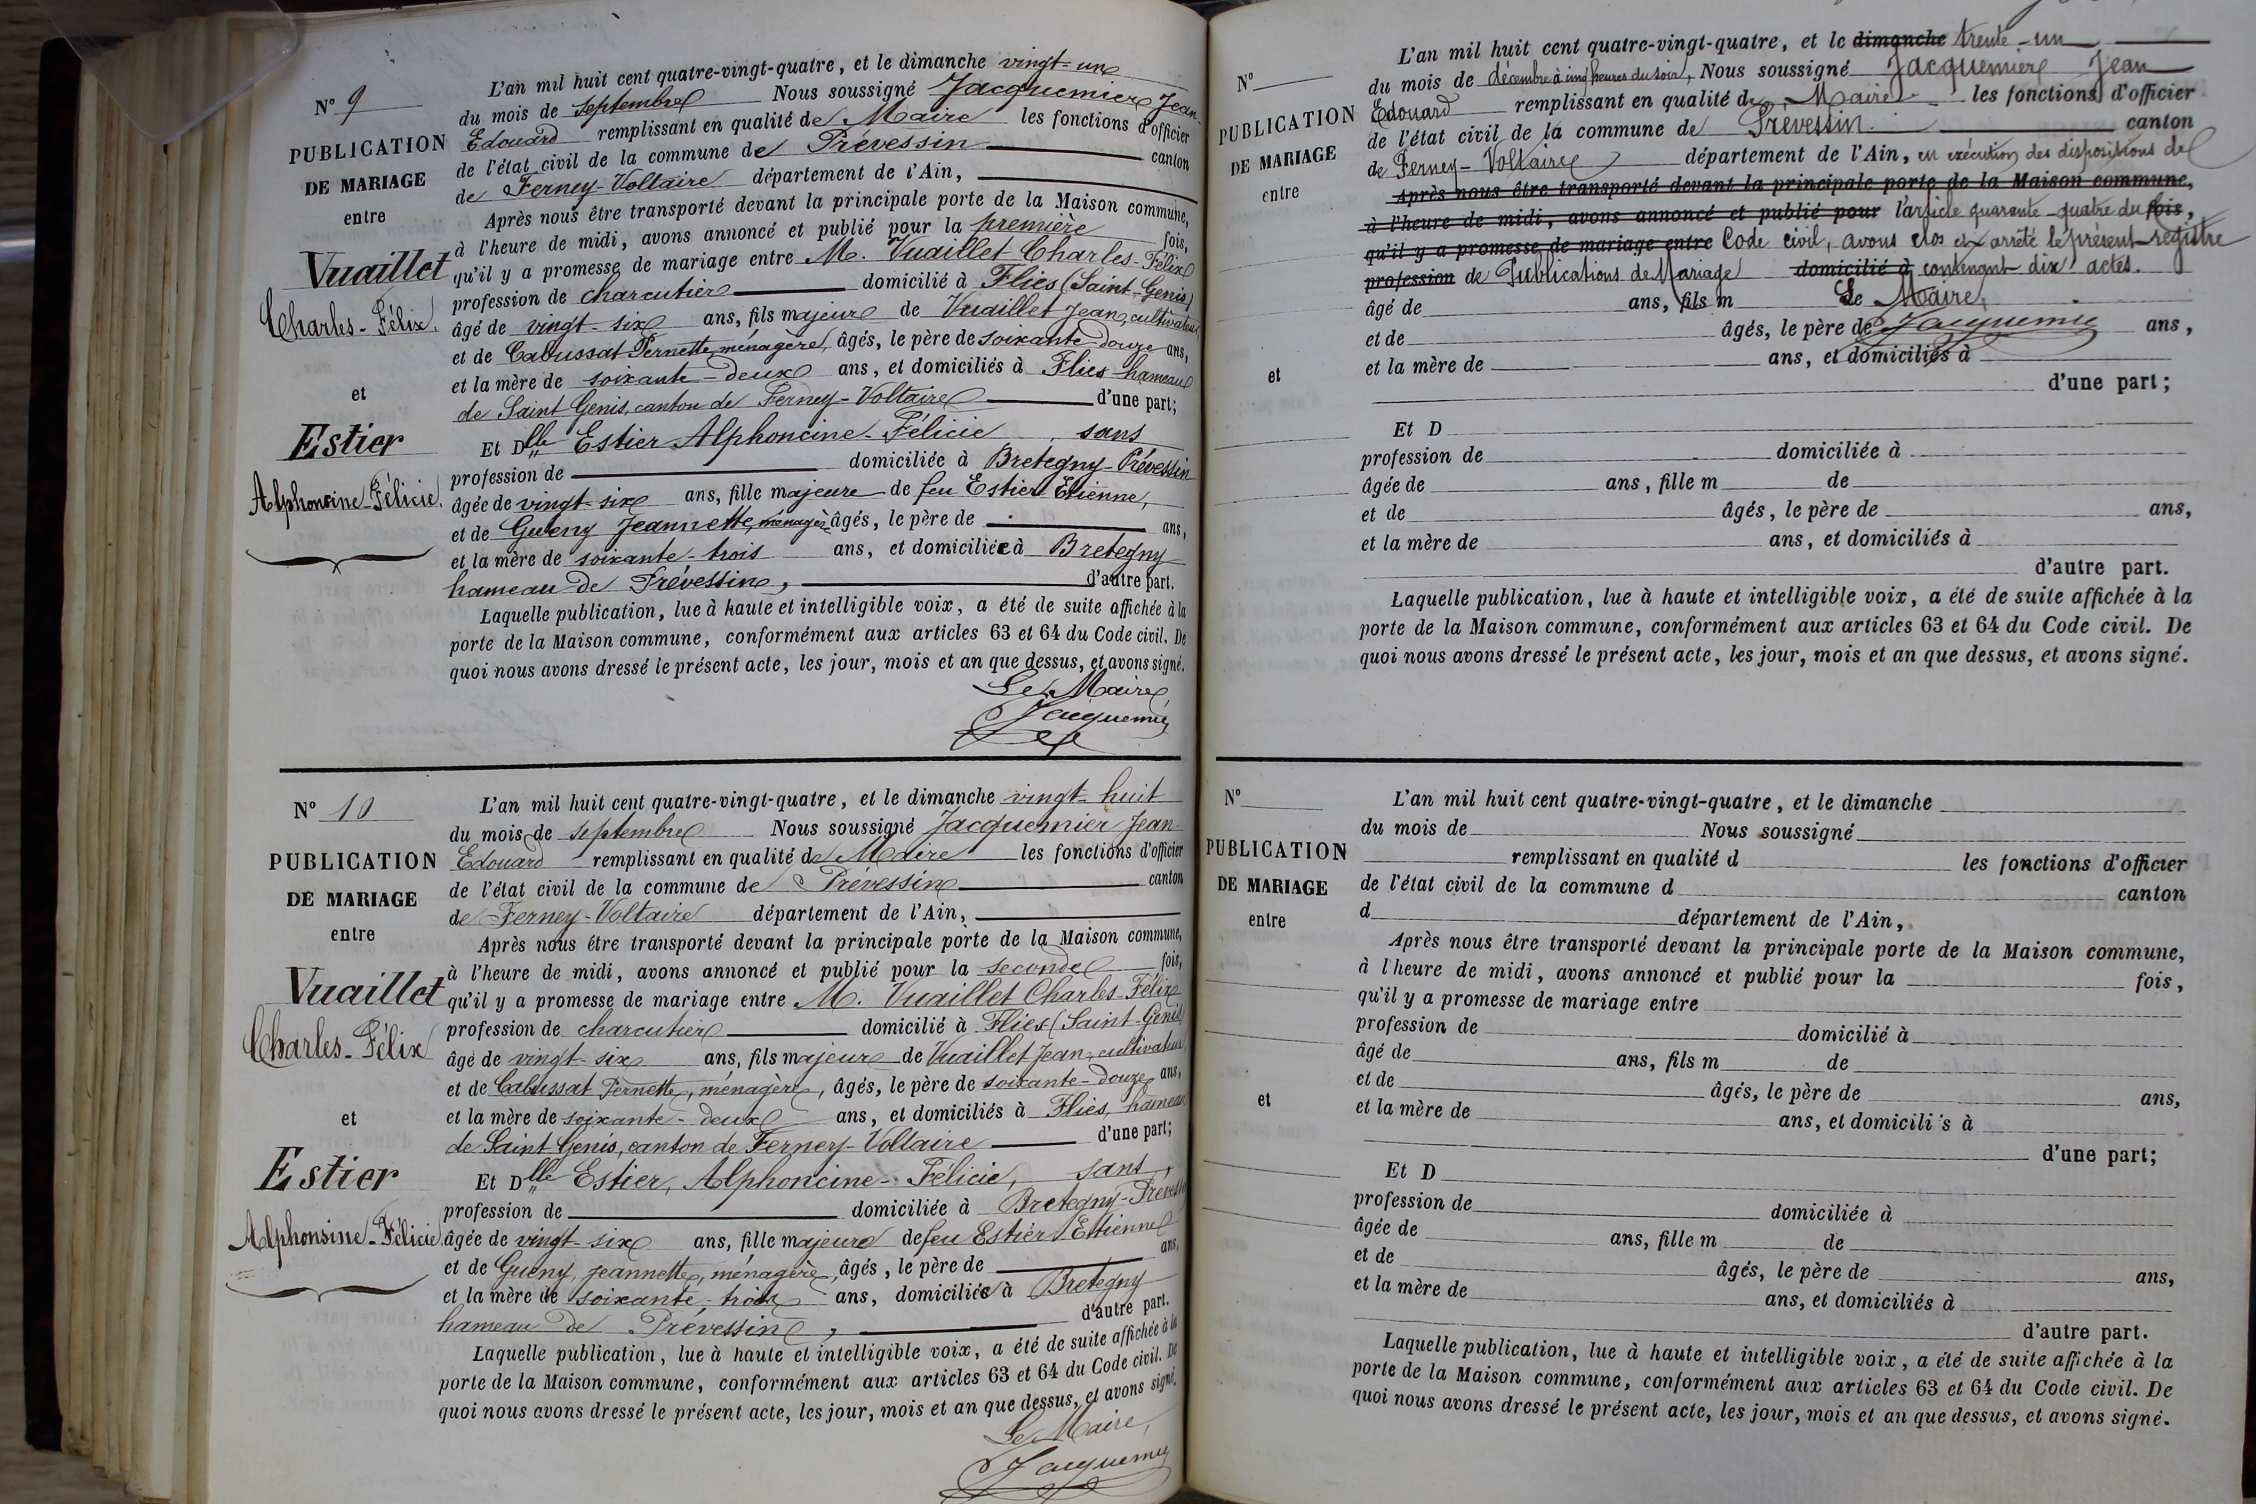 N° 9
PUBLICATION
DE MARIAGE
entre
Vuaillet
Charles-Félix
et
Estier
Alphoncine-Félicie.
L'an mil huit cent quatre-vingt-quatre, et le dimanche vingt-un
du mois de septembre Nous soussigné Jacquemier Jean-
Edouard remplissant en qualité de Maire les fonctions d'officier
de l'état civil de la commune de Prévessin canton
de Ferney-Voltaire département de l'Ain,
Après nous être transporté devant la principale porte de la Maison commune,
à l'heure de midi, avons annoncé et publié pour la première fois,
qu'il y a promesse de mariage entre M. Vuaillet Charles-Félix
profession de charcutier domicilié à Flies (Saint-Genis)
âgé de vingt-six ans, fils majeur de Vuaillet Jean, cultivateur,
et de Cabussat Pernette, ménagère, âgés, le père de soixante-douze ans,
et la mère de soixante-deux ans, et domiciliés à Flies hameau
de Saint Genis, canton de Ferney-Voltaire d'une part;
Et Dlle Estier Alphoncine-Félicie, sans
profession de domiciliée à Bretegny-Prévessin
âgée de vingt-six ans, fille majeure de feu Estier Etienne,
et de Gueny Jeannette, ménagère âgés, le père de ans,
et la mère de soixante-trois ans, et domiciliée à Bretegny
hameau de Prévessin, d'autre part.
Laquelle publication, lue à haute et intelligible voix, a été de suite affichée à la
porte de la Maison commune, conformément aux articles 63 et 64 du Code civil. De
quoi nous avons dressé le présent acte, les jour, mois et an que dessus, et avons signé.
Le Maire
Jacquemier
N° 10
PUBLICATION
DE MARIAGE
entre
Vuaillet
Charles-Félix
et
Estier
Alphonsine-Félicie.
L'an mil huit cent quatre-vingt-quatre, et le dimanche vingt-huit
du mois de septembre Nous soussigné Jacquemier Jean-
Edouard remplissant en qualité de Maire les fonctions d'officier
de l'état civil de la commune de Prévessin canton
de Ferney-Voltaire département de l'Ain,
Après nous être transporté devant la principale porte de la Maison commune,
à l'heure de midi, avons annoncé et publié pour la seconde fois,
qu'il y a promesse de mariage entre M. Vuaillet Charles-Félix
profession de charcutier domicilié à Flies (Saint-Genis)
âgé de vingt-six ans, fils majeur de Vuaillet Jean, cultivateur
et de Cabussat Pernette, ménagère, âgés, le père de soixante-douze ans,
et la mère de soixante-deux ans, et domiciliés à Flies, hameau
de Saint Genis, canton de Ferney-Voltaire d'une part;
Et Dlle Estier, Alphoncine-Félicie, sans
profession de domiciliée à Bretegny-Prévessin
âgée de vingt-six ans, fille majeure de feu Estier Ettienne
et de Gueny, Jeannette, ménagère, âgés, le père de ans,
et la mère de soixante-trois ans, domiciliée à Bretegny
hameau de Prévessin, d'autre part.
Laquelle publication, lue à haute et intelligible voix, a été de suite affichée à la
porte de la Maison commune, conformément aux articles 63 et 64 du Code civil. De
quoi nous avons dressé le présent acte, les jour, mois et an que dessus, et avons signé.
Le Maire,
Jacquemier
N°
PUBLICATION
DE MARIAGE
entre
et
L'an mil huit cent quatre-vingt-quatre, et le dimanche trente-un
du mois de décembre à cinq heures du soir, Nous soussigné Jacquemier Jean
Edouard remplissant en qualité de Maire les fonctions d'officier
de l'état civil de la commune de Prévessin canton
de Ferney-Voltaire département de l'Ain, en exécution des dispositions de
Après nous être transporté devant la principale porte de la Maison commune,
à l'heure de midi, avons annoncé et publié pour l'article quarante-quatre du fois,
qu'il y a promesse de mariage entre Code civil, avons clos et arrêté le présent registre
profession de Publications de Mariage domicilié à contenant dix actes.
âgé de ans, fils m Le Maire,
et de âgés, le père de Jacquemier ans,
et la mère de ans, et domiciliés à
d'une part;
Et D
profession de domiciliée à
âgée de ans, fille m de
et de âgés, le père de ans,
et la mère de ans, et domiciliés à
d'autre part.
Laquelle publication, lue à haute et intelligible voix, a été de suite affichée à la
porte de la Maison commune, conformément aux articles 63 et 64 du Code civil. De
quoi nous avons dressé le présent acte, les jour, mois et an que dessus, et avons signé.
N°
PUBLICATION
DE MARIAGE
entre
et
L'an mil huit cent quatre-vingt-quatre, et le dimanche
du mois de Nous soussigné
remplissant en qualité d les fonctions d'officier
de l'état civil de la commune d canton
d département de l'Ain,
Après nous être transporté devant la principale porte de la Maison commune,
à l'heure de midi, avons annoncé et publié pour la fois,
qu'il y a promesse de mariage entre
profession de domicilié à
âgé de ans, fils m de
et de âgés, le père de ans,
et la mère de ans, et domicili s à
d'une part;
Et D
profession de domiciliée à
âgée de ans, fille m de
et de âgés, le père de ans,
et la mère de ans, et domiciliés à
d'autre part.
Laquelle publication, lue à haute et intelligible voix, a été de suite affichée à la
porte de la Maison commune, conformément aux articles 63 et 64 du Code civil. De
quoi nous avons dressé le présent acte, les jour, mois et an que dessus, et avons signé.